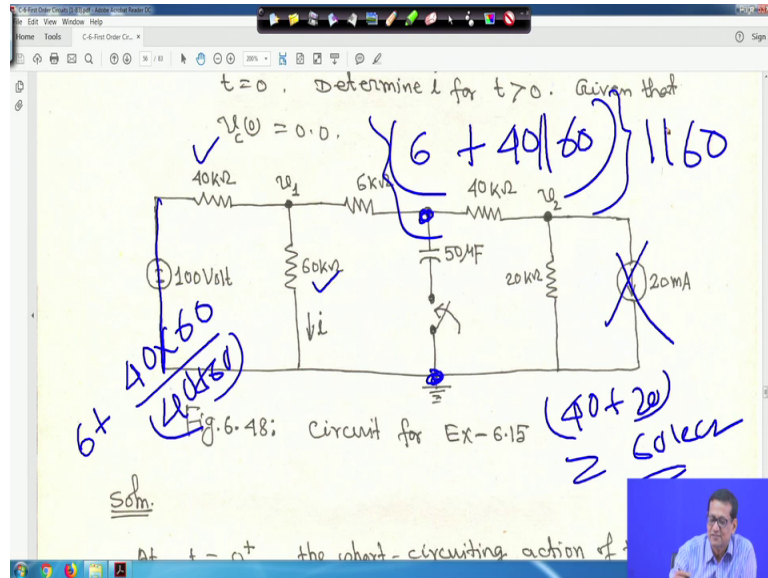 C-6-First Order Circuits [1-83].pdf - Adobe Acrobat Reader DC
File Edit View Window Help
Home Tools C-6-First Order Cir... × Sign
56 / 83 200%
t=0. Determine i for t>0. Given that
v_c(0) = 0.0.
(6 + 40||60)}||60
40kΩ v1 6kΩ 40kΩ v2
100Volt 60kΩ 50μF 20kΩ 20mA
↓i
6+ 40x60
(40+60)
(40+20)
= 60kΩ
Fig. 6.48: Circuit for Ex-6.15
Soln.
At t = 0+ the short-circuiting action of